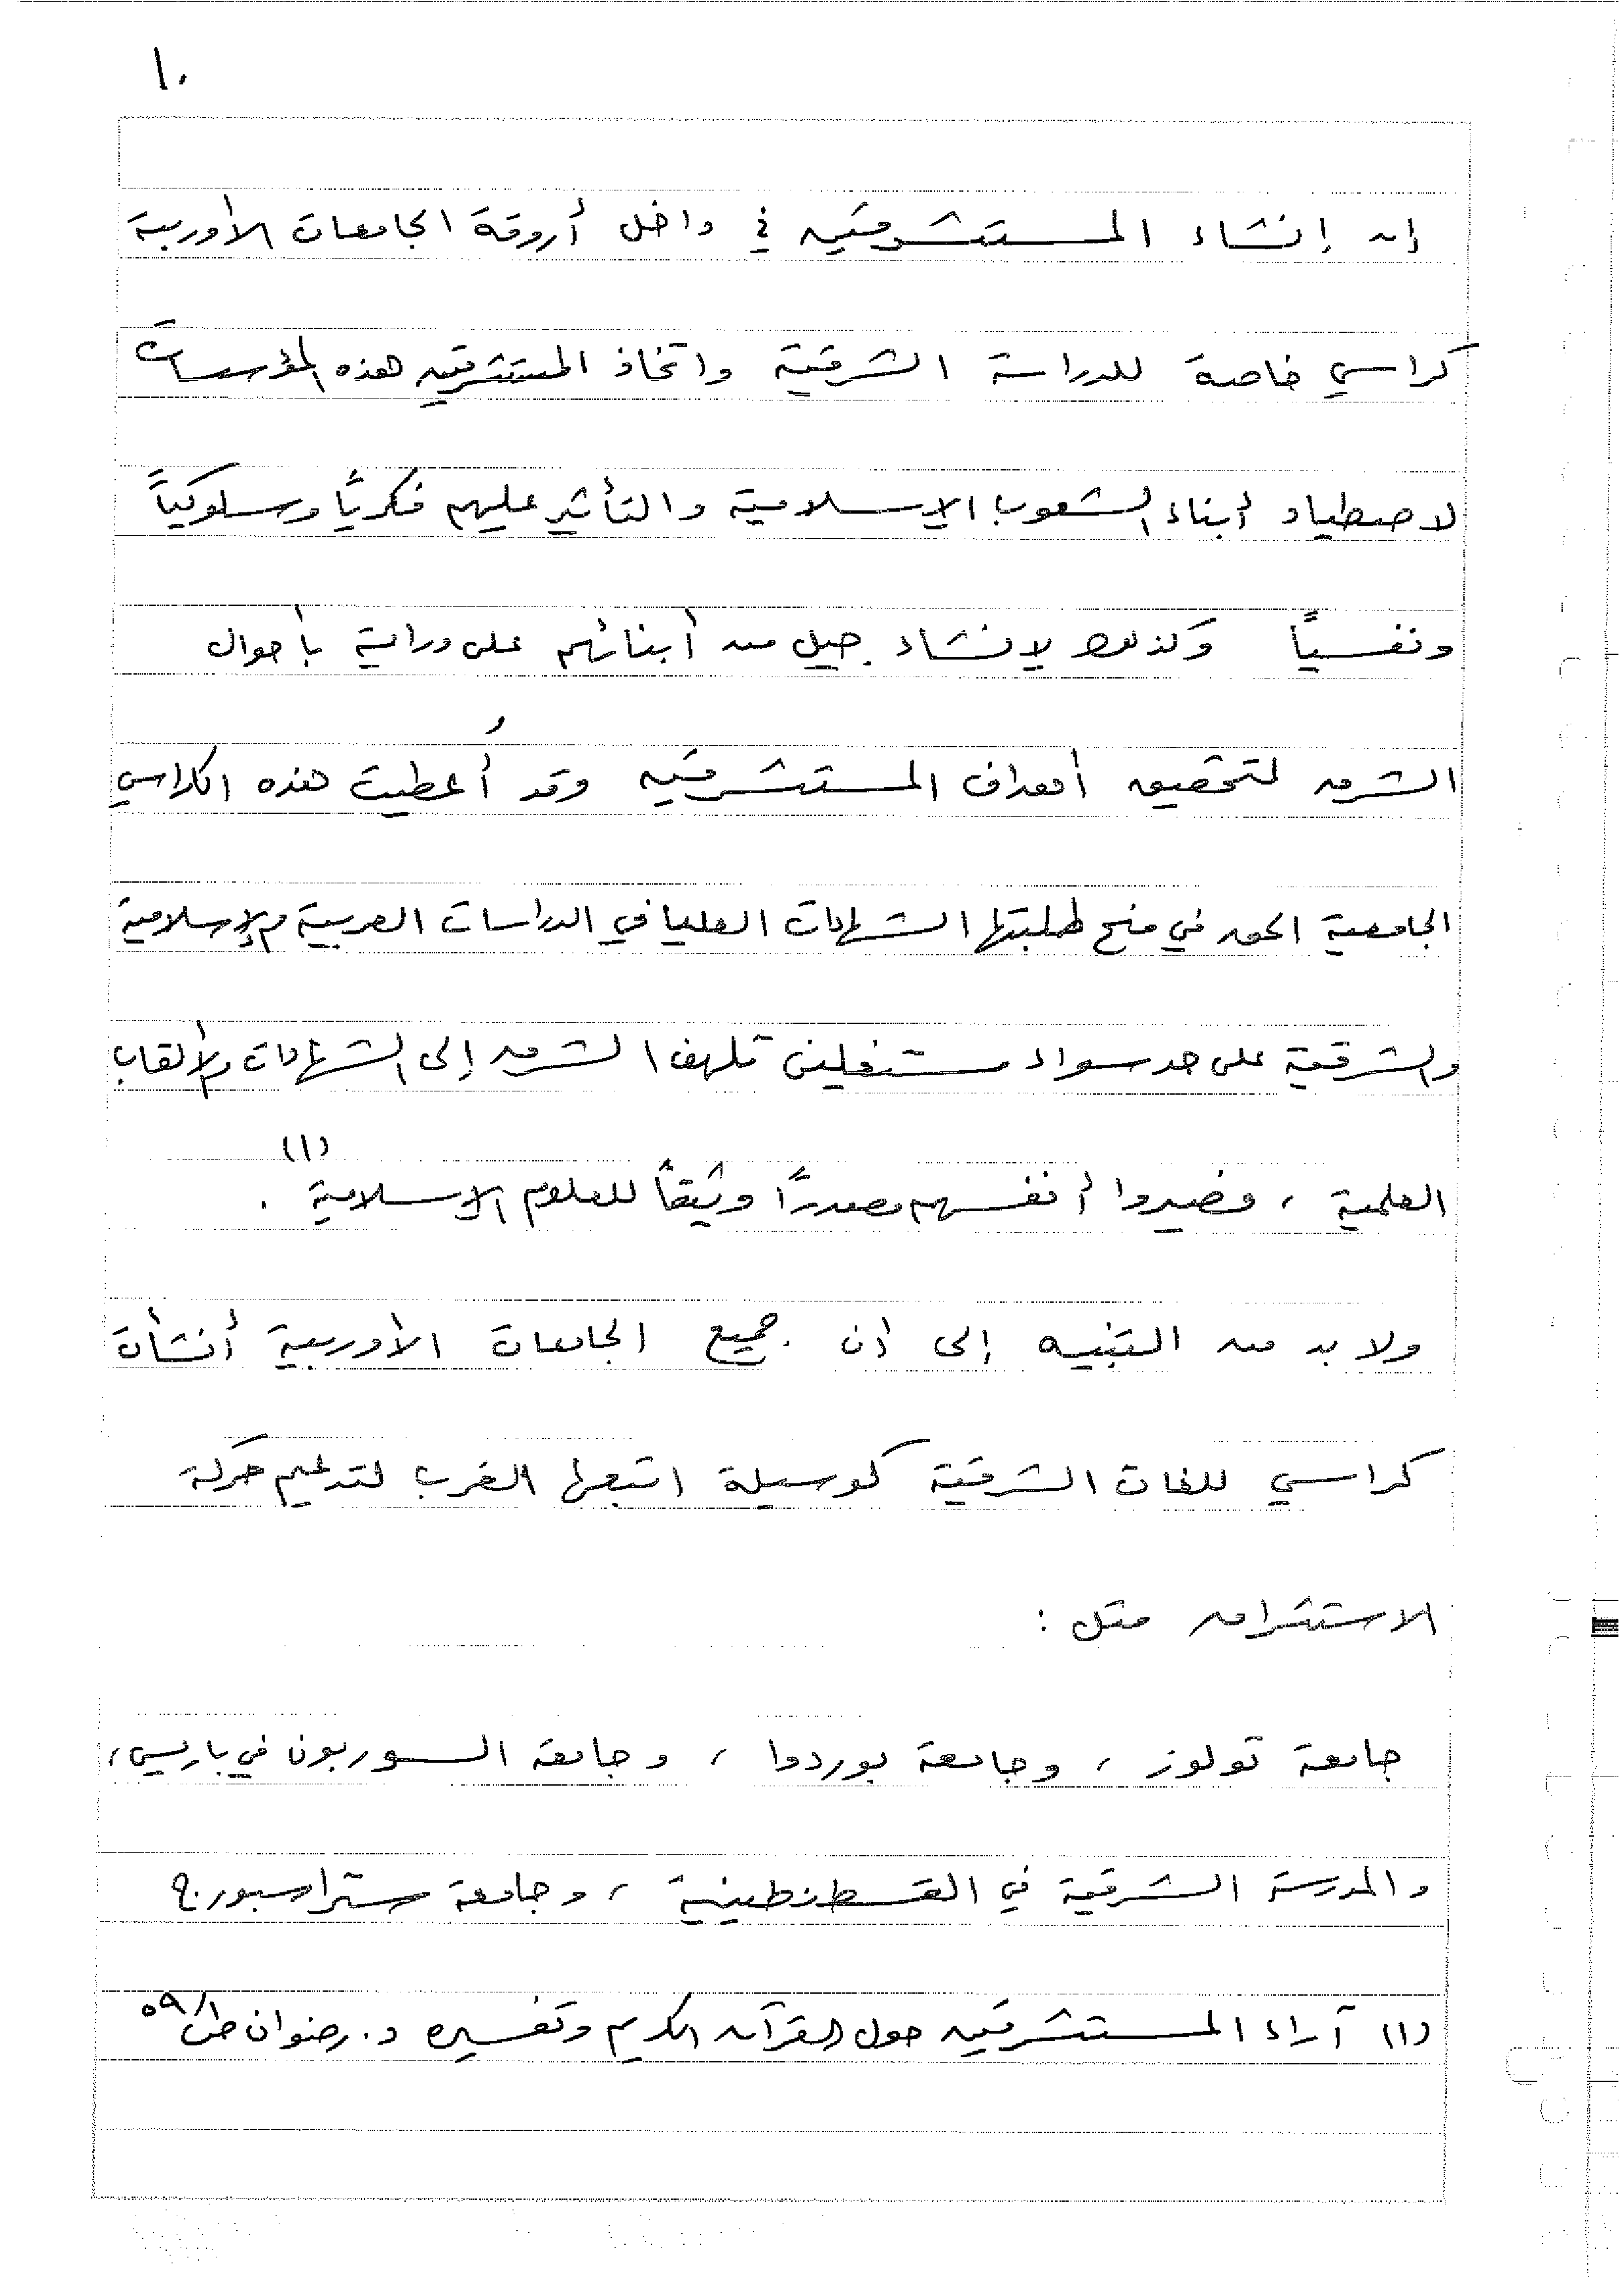 ١٠
إن إنشاء المستشرقين في داخل أروقة الجامعات الأوربية
كراسي خاصة للدراسة الشرقية واتخاذ المستشرقين هذه المؤسسات
لاصطياد أبناء الشعوب الإسلامية والتأثير عليهم فكريًا وسلوكياً
ونفسياً وكذلك لإنشاء جيل من أبنائهم على دراية بأحوال
الشرق لتحقيق أهداف المستشرقين وقد أُعطيت هذه الكراسي
الجامعية الحق في منح طلبتها الشهادات العليا في الدراسات العربية والإسلامية
والشرقية على حد سواء مستغلين تلهف الشرق إلى الشهادات والألقاب
العلمية ، فصيروا أنفسهم مصدرًا وثيقاً للعلوم الإسلامية (١) .
ولا بد من التنبيه إلى أن جميع الجامعات الأوربية أنشأت
كراسي للغات الشرقية كوسيلة اتبعها الغرب لتدعيم حركة
الاستشراق مثل :
جامعة تولوز ، وجامعة بوردوا ، وجامعة السوربون في باريس ،
والمدرسة الشرقية في القسطنطينية ، وجامعة ستراسبورج
(١) آراء المستشرقين حول القرآن الكريم وتفسيره د. رضوان ص ٥٩/١